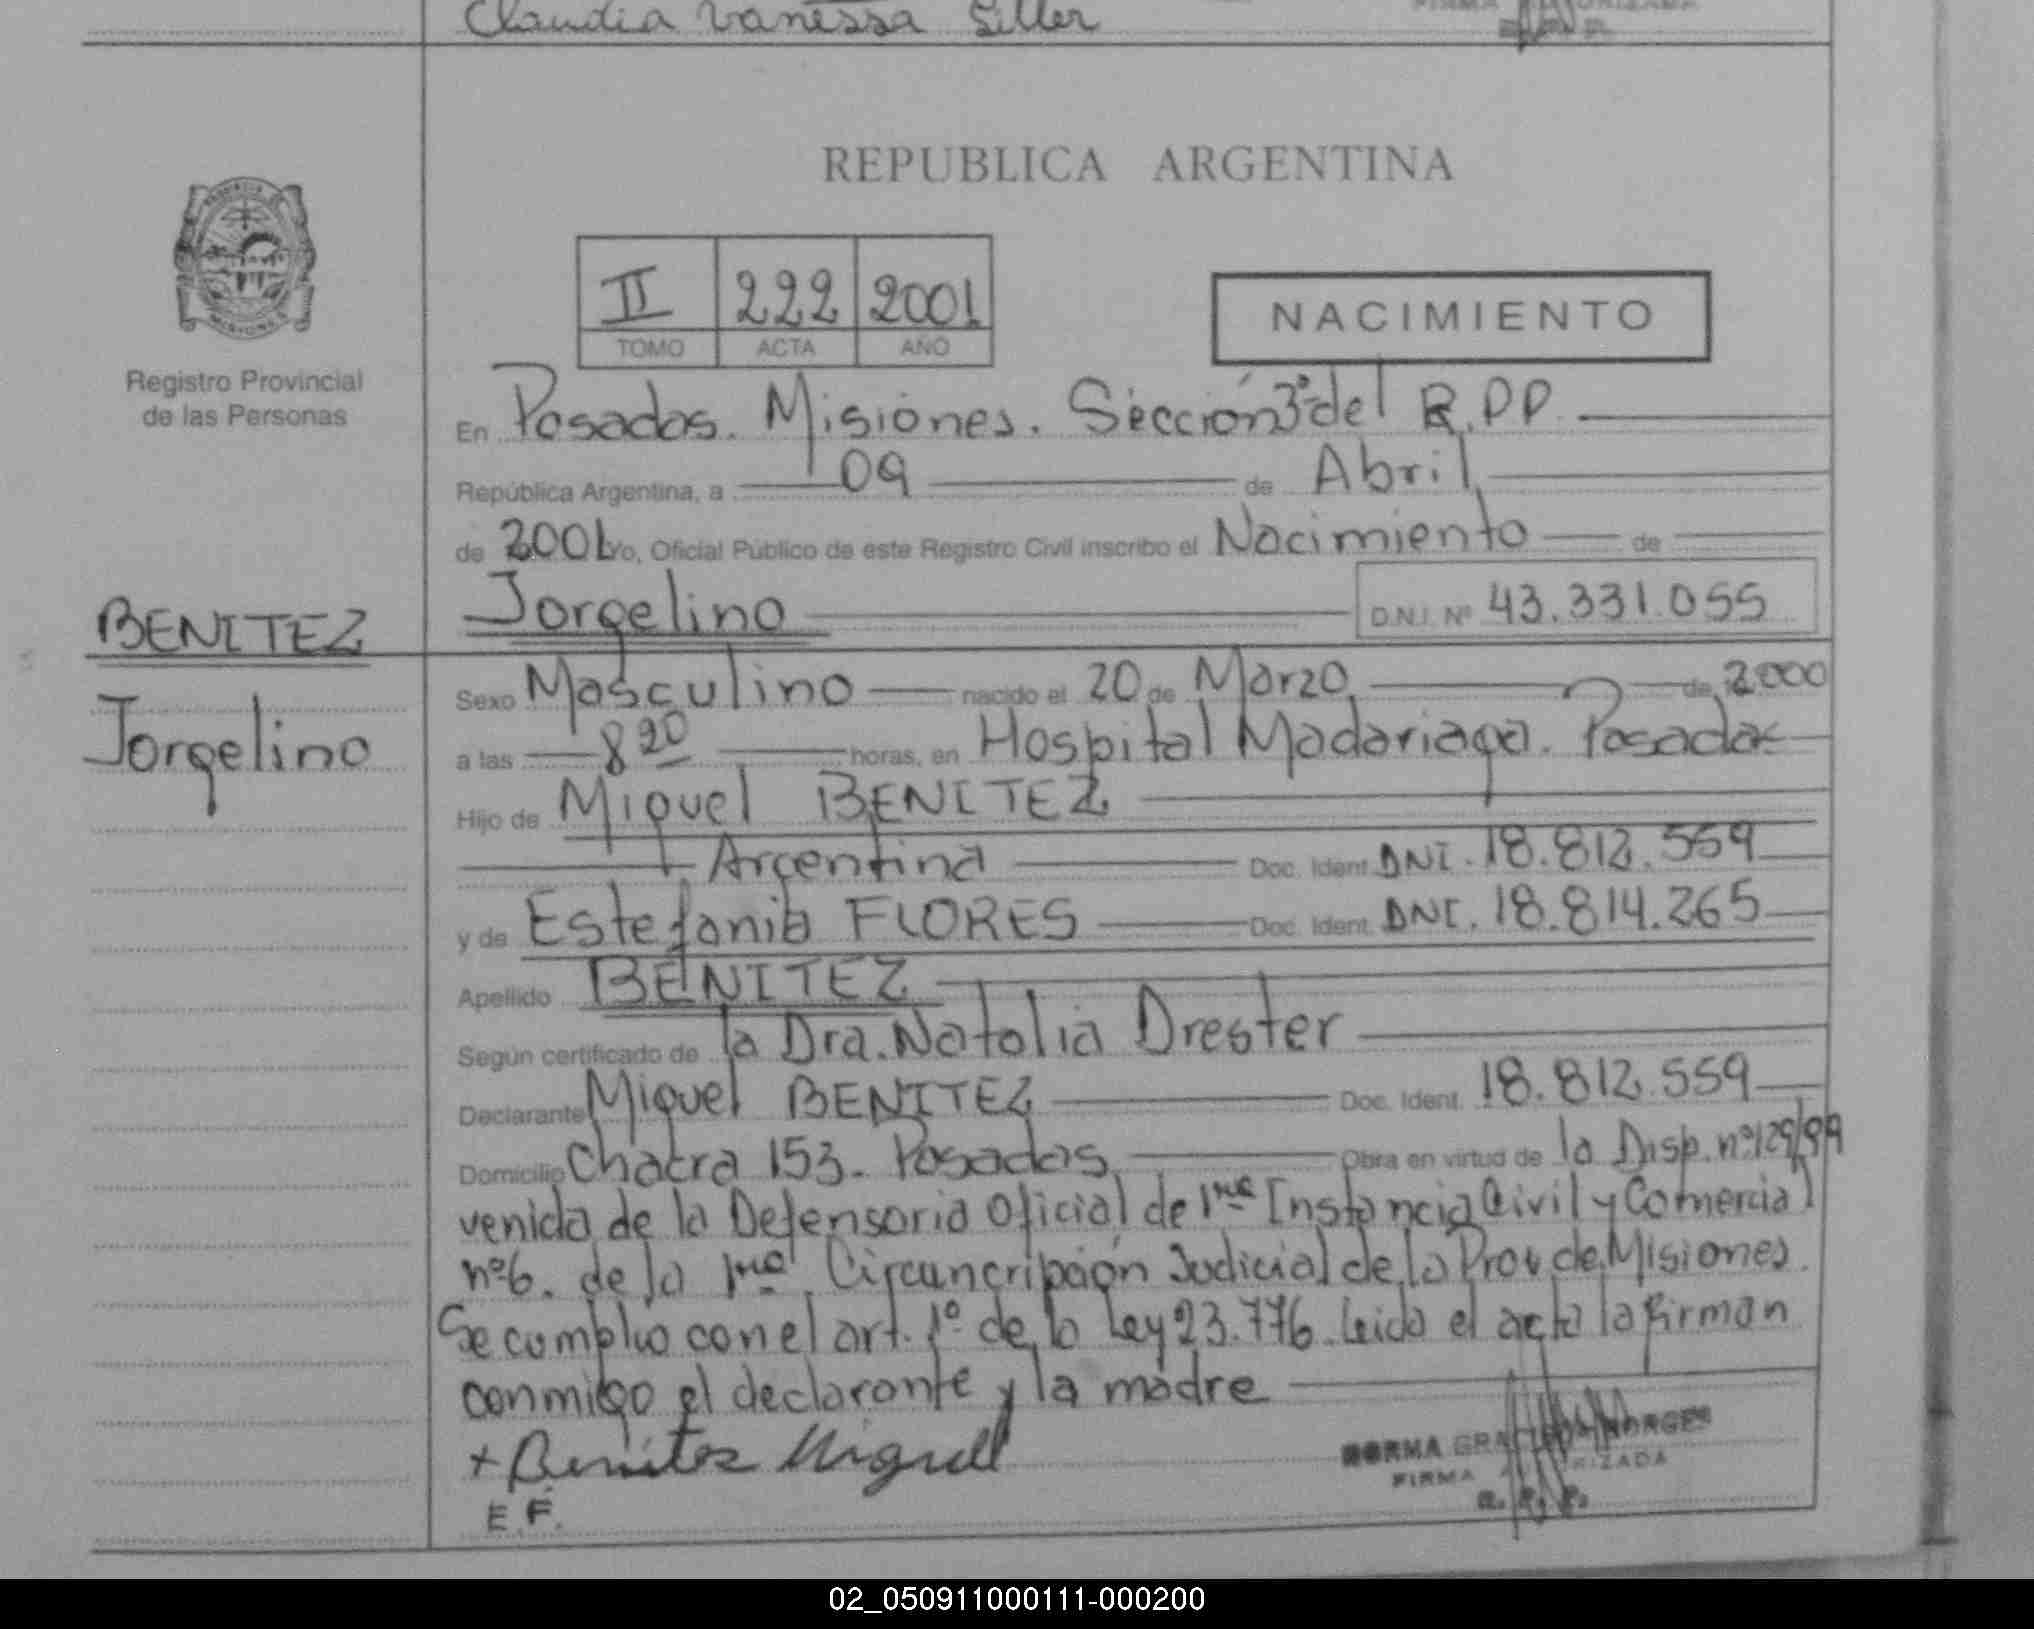 Claudia Vanessa Siller
REPUBLICA ARGENTINA
PROVINCIA DE
MISIONES
Registro Provincial
de las Personas
II 222 2001
TOMO ACTA AÑO
NACIMIENTO
En Posadas. Misiones. Sección 3º del R.P.P.
República Argentina, a 09 de Abril
de 2001 Yo, Oficial Público de este Registro Civil inscribo el Nacimiento de
BENITEZ
Jorgelino
Jorgelino D.N.I. Nº 43.331.055
Sexo Masculino nacido el 20 de Marzo de 2000
a las 8 20 horas, en Hospital Madariaga. Posadas
Hijo de Miguel BENITEZ
Argentina Doc. Ident. DNI. 18.812.559
y de Estefania FLORES Doc. Ident. DNI. 18.814.265
Apellido BENITEZ
Según certificado de la Dra. Natalia Drester
Declarante Miguel BENITEZ Doc. Ident. 18.812.559
Domicilio Chacra 153. Posadas Obra en virtud de la Disp. nº 129/99
venida de la Defensoria Oficial de 1ra Instancia Civil y Comercial
nº 6. de la 1ra Circuncripción Judicial de la Prov de Misiones.
Se cumplio con el art. 1º de la Ley 23.776. Leida el acta la firman
conmigo el declarante y la madre
+ Benites Miguel
E F.
NORMA GRACIELA BORGES
FIRMA AUTORIZADA
R. P. P.
02_050911000111-000200